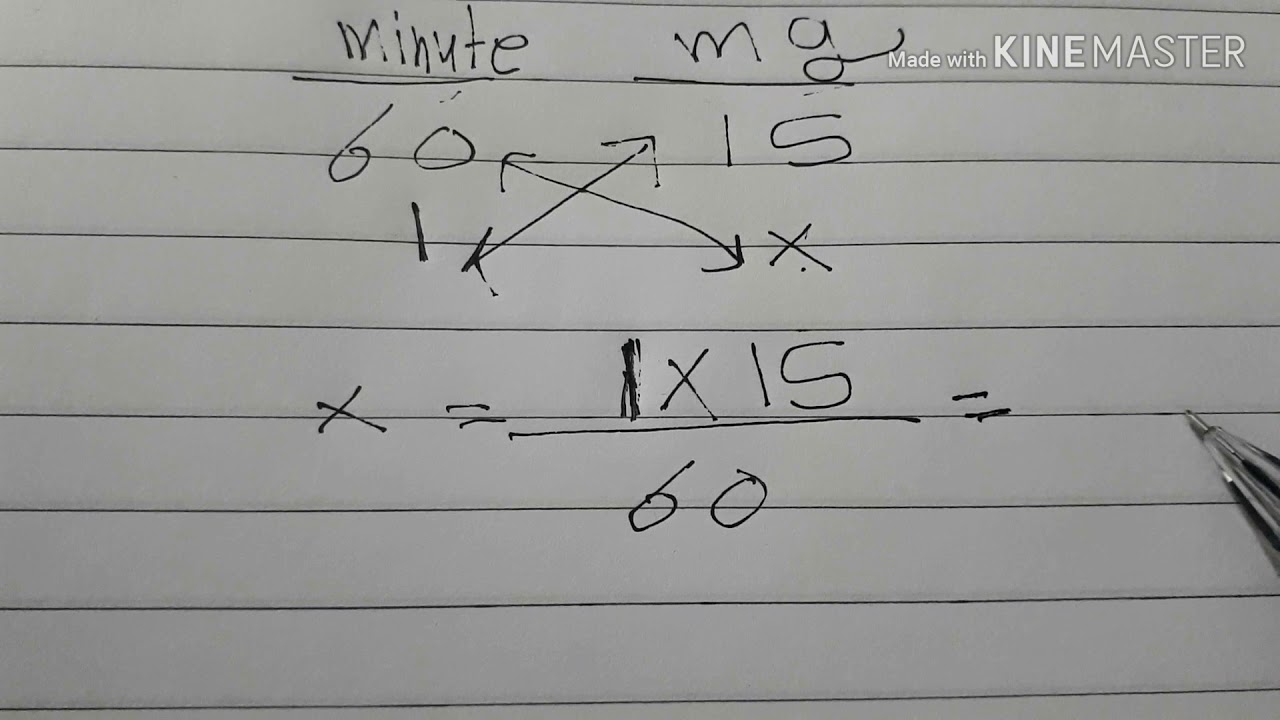 minute mg
Made with KINEMASTER
60 15
1 x
x = 1 x 15 =
60